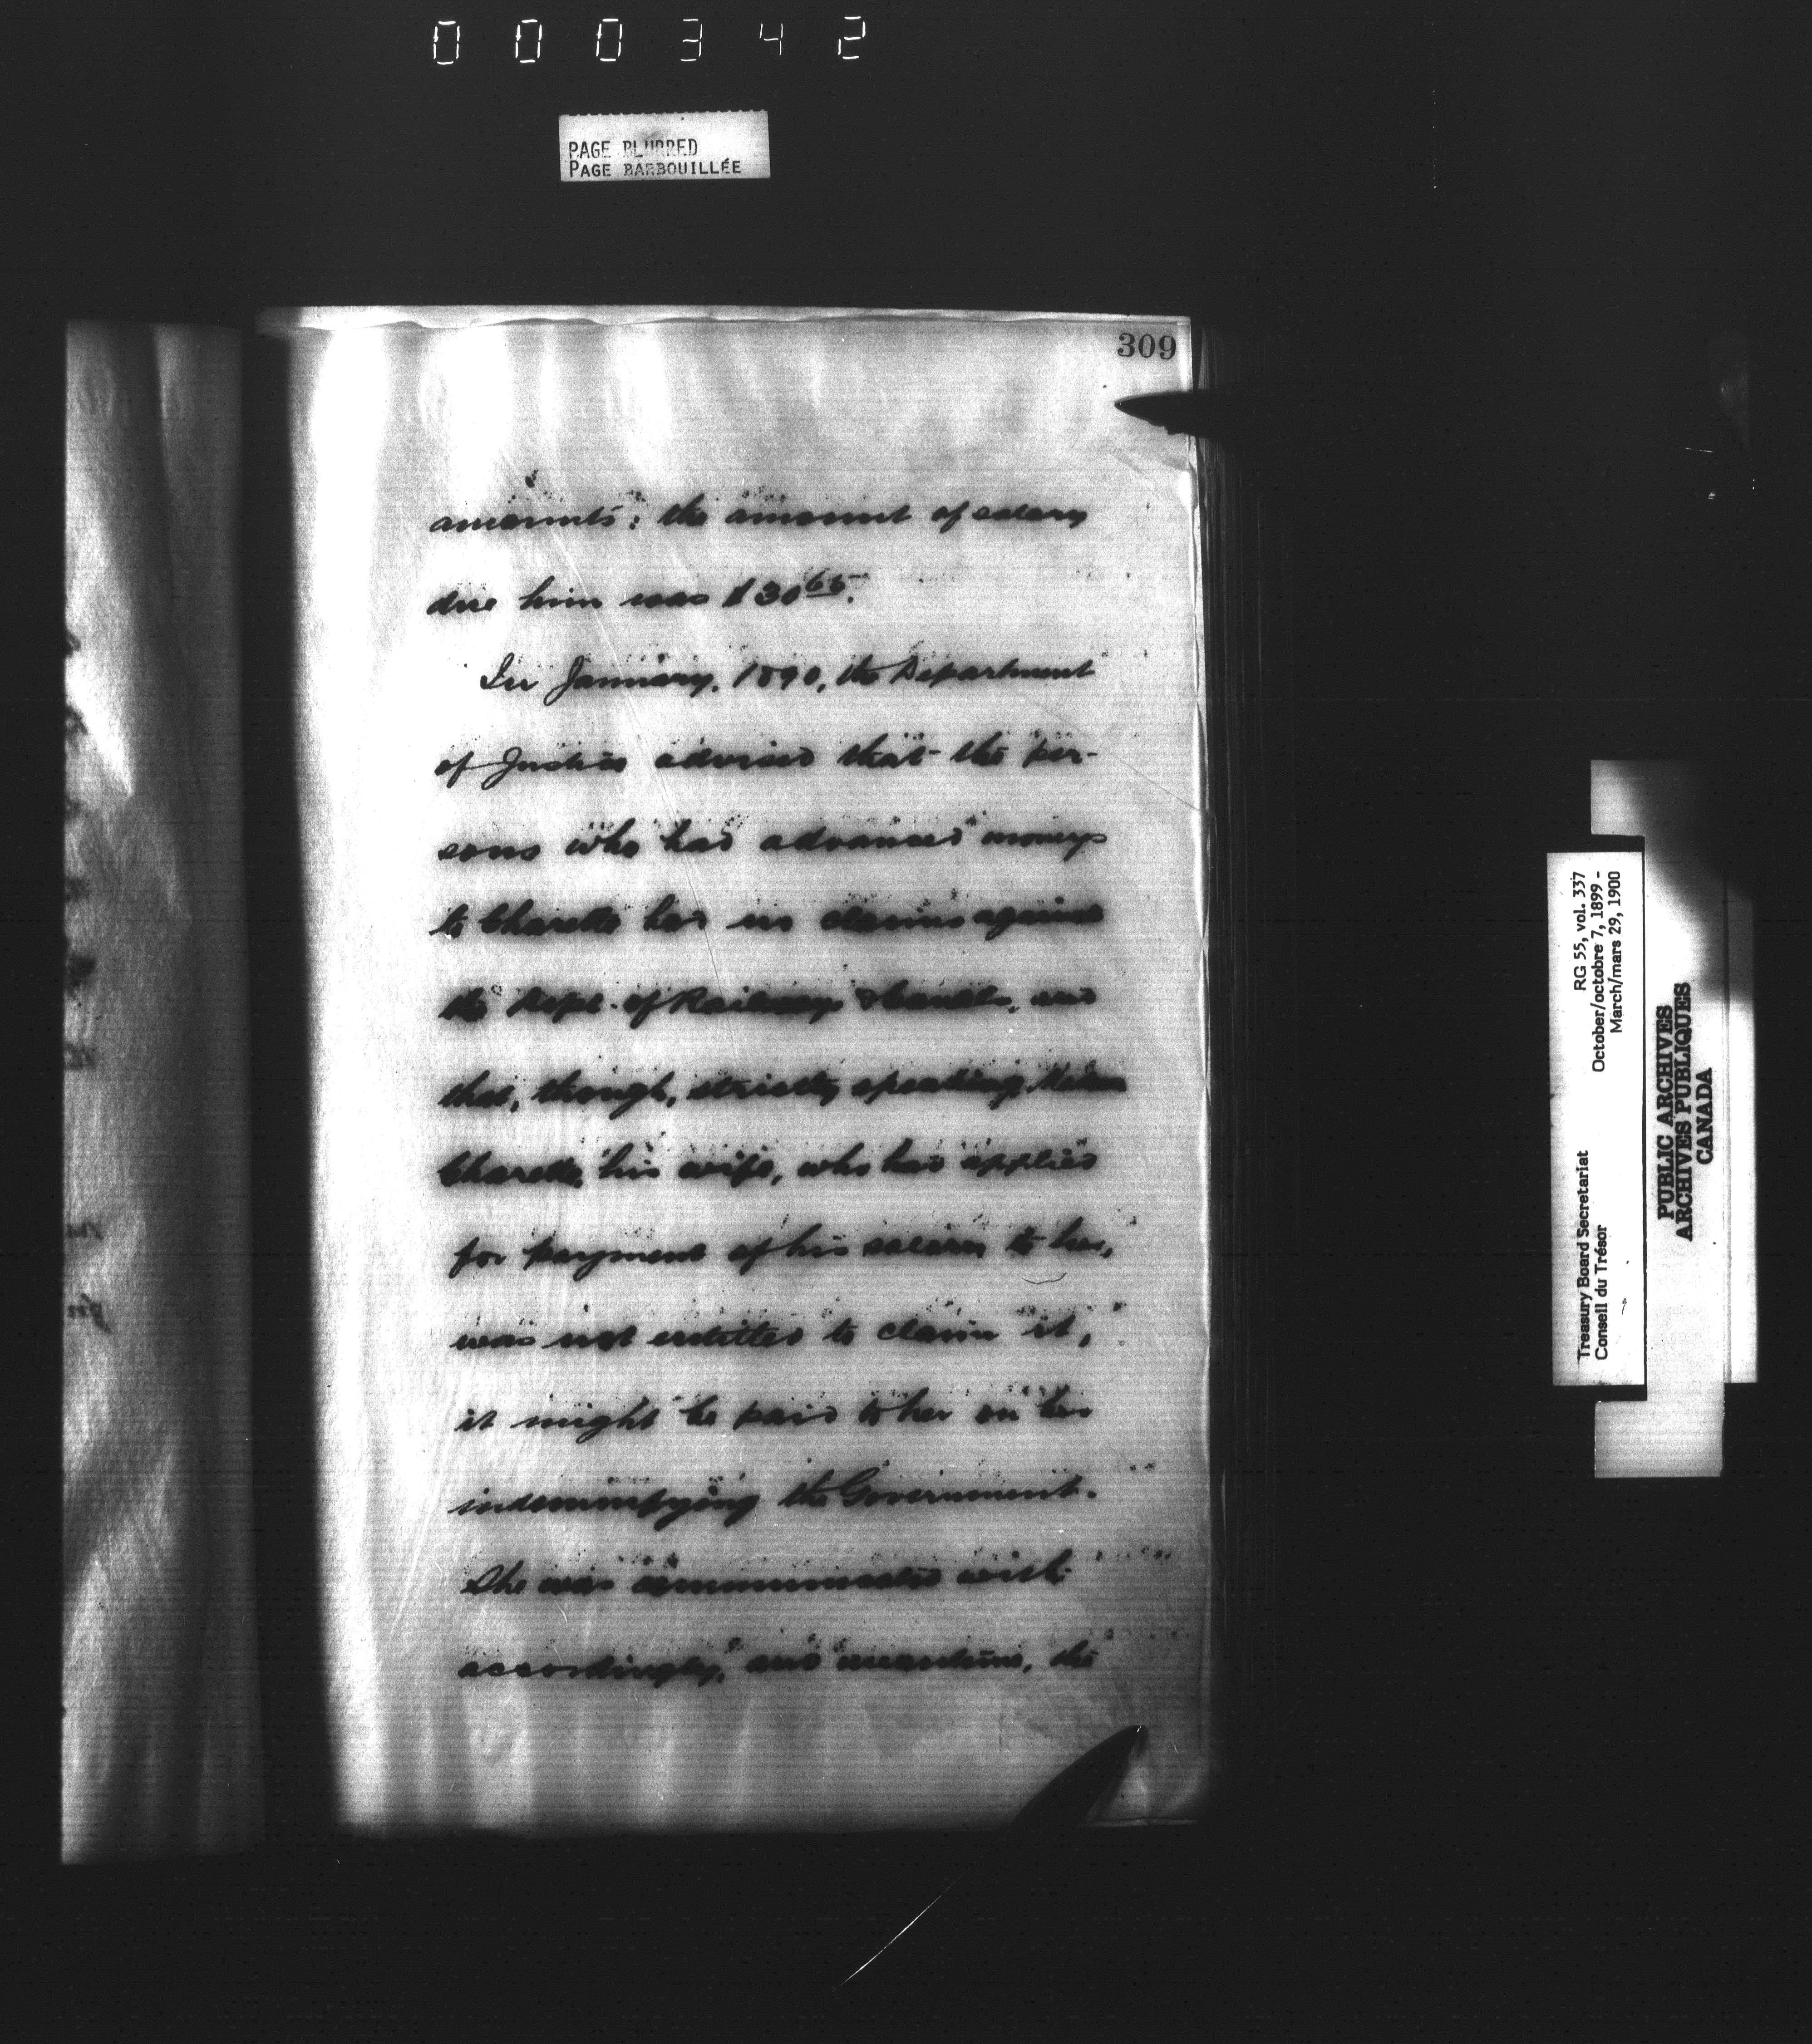 000342
PAGE BLURRED
PAGE BARBOUILLÉE
309
amounts: the amount of salary
due him was $30 65.
In January, 1890, the Department
of Justice advised that the per-
sons who had advanced moneys
to Charette had no claims against
the Dept. of Railways & Canals, and
that, though, strictly speaking,
Charette, his wife, who had applied
for payment of his salary to her,
was not entitled to claim it,
it might be paid to her on her
indemnifying the Government.
She was communicated with
accordingly, and meantime, the
Treasury Board Secretariat RG 55, vol. 337
Conseil du Trésor October/octobre 7, 1899 -
March/mars 29, 1900
PUBLIC ARCHIVES
ARCHIVES PUBLIQUES
CANADA